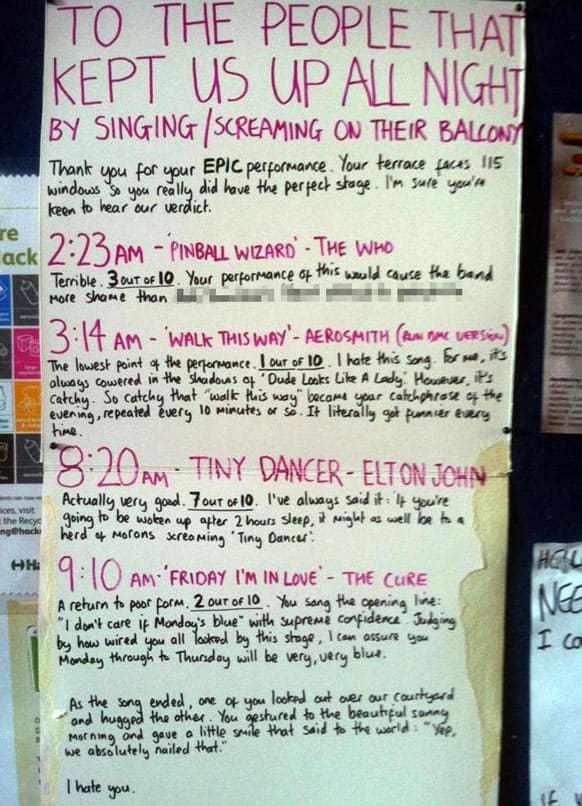 TO THE PEOPLE THAT
KEPT US UP ALL NIGHT
BY SINGING/SCREAMING ON THEIR BALCONY
Thank you for your EPIC performance. Your terrace faces 115
windows so you really did have the perfect stage. I'm sure you're
keen to hear our verdict.
2:23 AM - 'PINBALL WIZARD' - THE WHO
Terrible. 3 OUT OF 10. Your performance of this would cause the band
more shame than
3:14 AM - 'WALK THIS WAY' - AEROSMITH (RUN DMC VERSION)
The lowest point of the performance. 1 OUT OF 10. I hate this song. For me, it's
always cowered in the shadows of 'Dude Looks Like A Lady'. However, it's
catchy. So catchy that "walk this way" became your catchphrase of the
evening, repeated every 10 minutes or so. It literally got funnier every
time.
8:20 AM - TINY DANCER - ELTON JOHN
Actually very good. 7 OUT OF 10. I've always said it: 'If you're
going to be woken up after 2 hours sleep, it might as well be to a
herd of morons screaming 'Tiny Dancer'.
9:10 AM - 'FRIDAY I'M IN LOVE' - THE CURE
A return to poor form. 2 OUT OF 10. You sang the opening line:
"I don't care if Monday's blue" with supreme confidence. Judging
by how wired you all looked by this stage, I can assure you
Monday through to Thursday will be very, very blue.
As the song ended, one of you looked out over our courtyard
and hugged the other. You gestured to the beautiful sunny
morning and gave a little smile that said to the world: "Yep,
we absolutely nailed that."
I hate you.
re
lack
ices, visit
the Recyc
ng@hack
NEE
I co